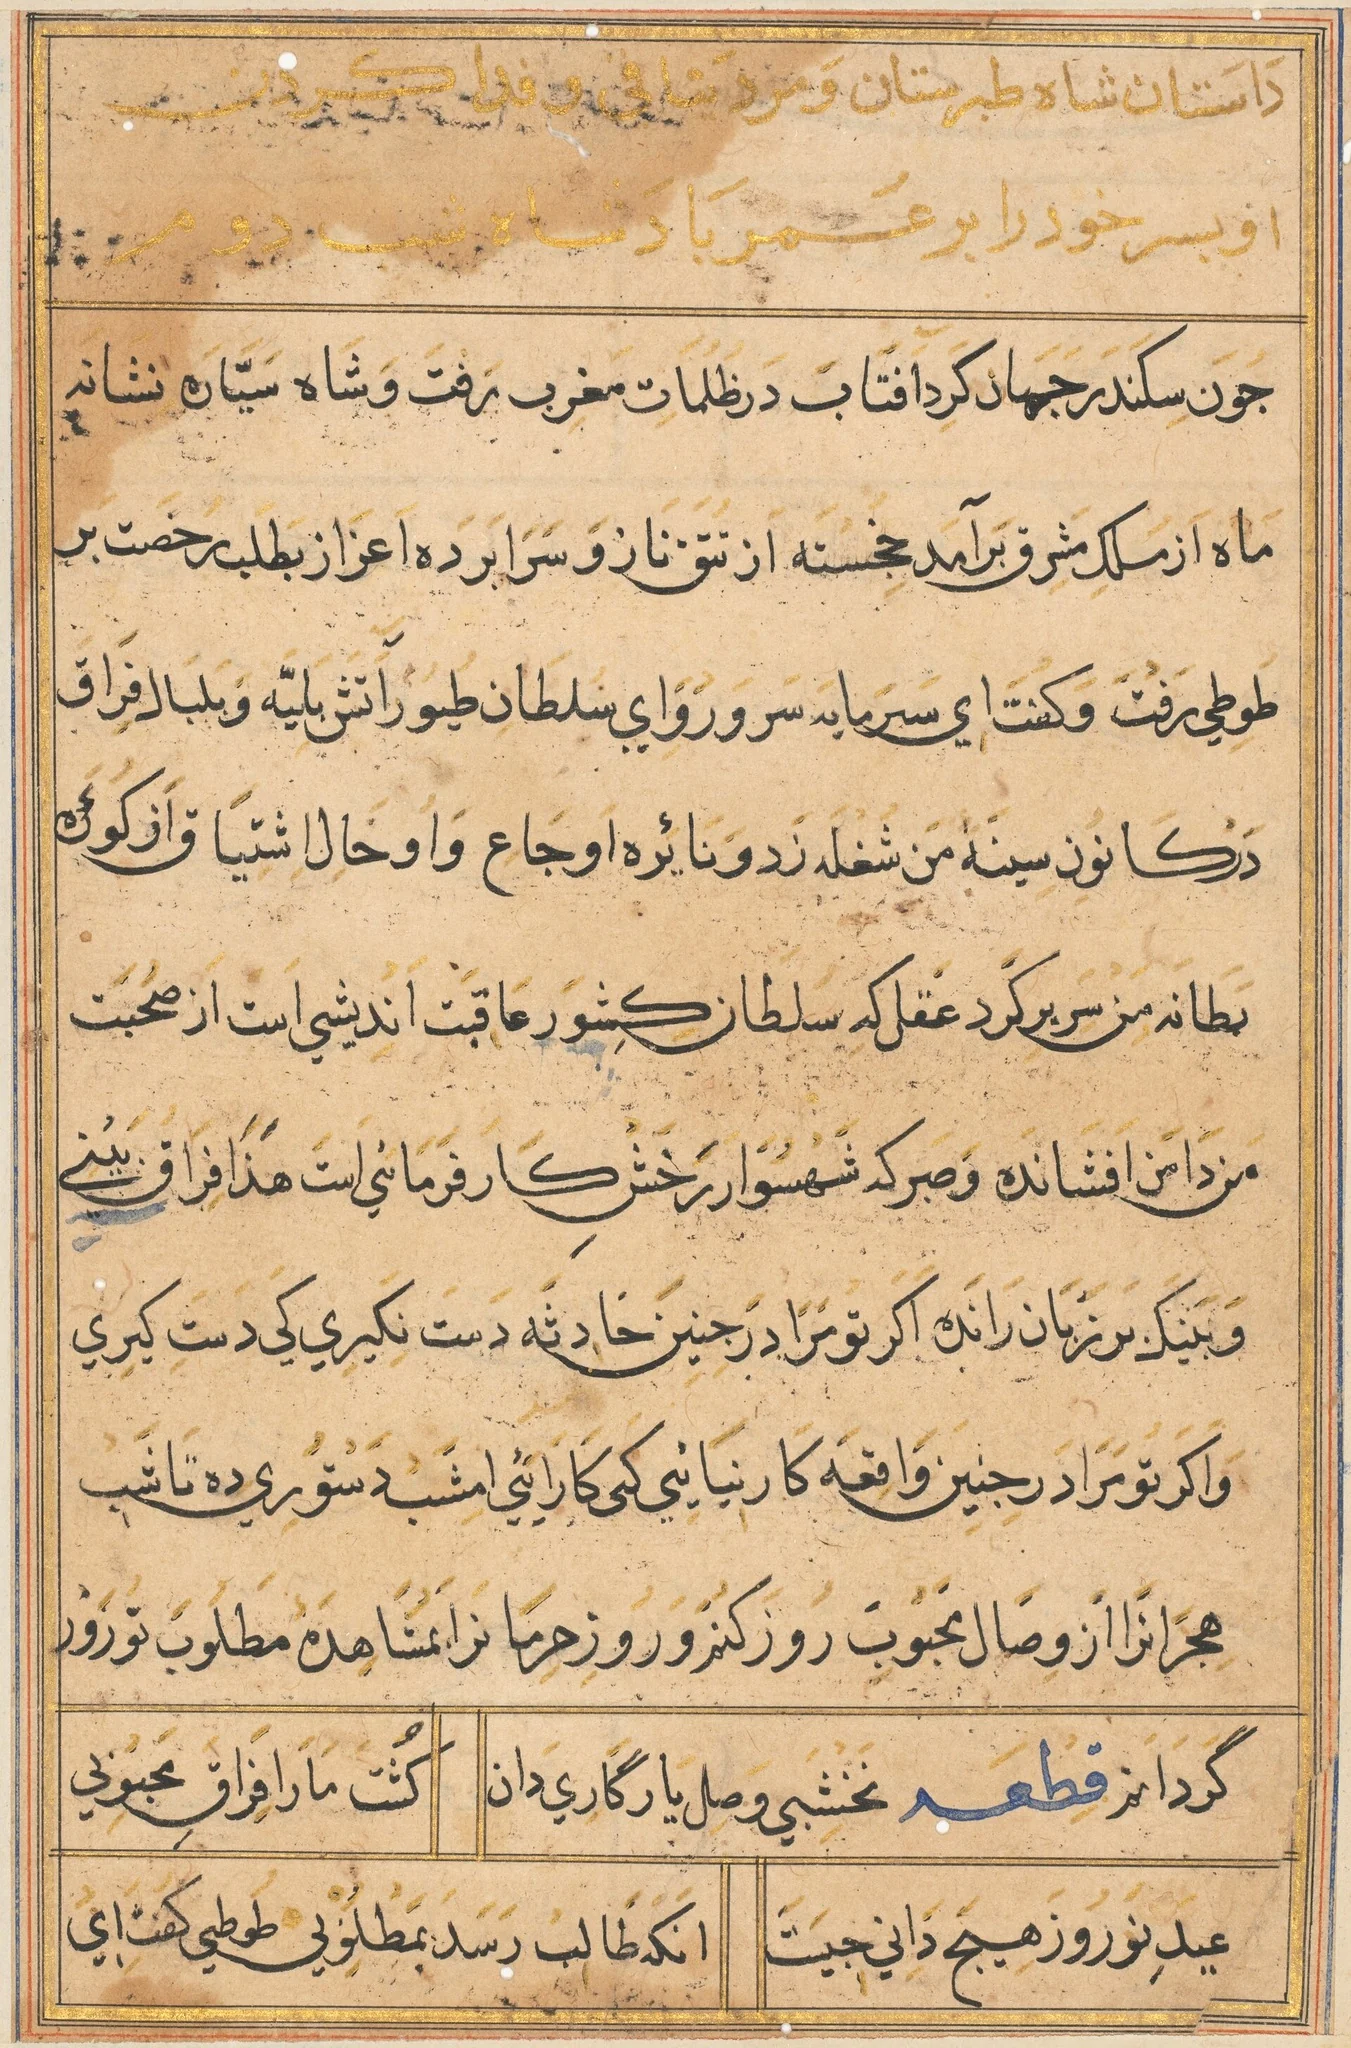 داستان شاه طبرستان و مرد و فدا کردن
او پسر خود را بر عمر بادشاه شب دوم
جون سکندر جهان کرد افتاب در ظلمات مغرب رفت و شاه سیّاره نشانه
ماه از مشرق برآمد خجسته از تتق ناز و سرابرده اعزاز بطلب رخصت بر
طوطي رفت و کفت اي سرمایه سرور و اي سلطان طیور آتش و بلبال فراق
درکانون سینهٔ من شغله زد و نائره اوجاع و اوحال اشتیاق از کوره
بطانه من سربر کرد عقل که سلطان کشور عاقبت اندیشي است از صحبت
من دامن افشانده و صبر که شهسوار رخش کار فرمائي است هذا فراق بیني
و بینک بر زبان رانده اکر تو مرا در جنین حادثه دست نکیري کي دست کیري
واکر تو مرا در جنین واقعه کار نیائي کی کار ائي امشب دستوري ده تا شب
هجرانرا از وصال محبوب روز کنم و روز حرمانرا بمشاهدهٔ مطلوب نوروز
گردانم قطعه نخشبي وصل یار گاري دان کشت مارا فراق محبوبي
عید نوروز هیج داني جیست انکه طالب رسد بمطلوبي طوطي کفت اي